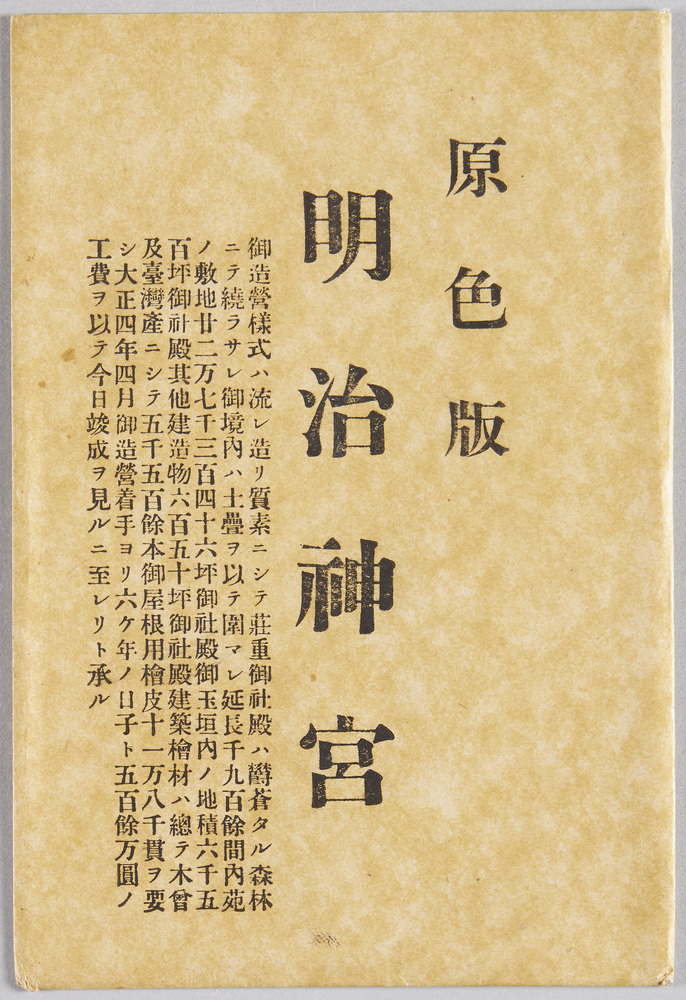 原色版
明治神宮
御造營樣式ハ流レ造リ質素ニシテ莊重御社殿ハ欝蒼タル森林
ニテ繞ラサレ御境內ハ土疊ヲ以テ圍マレ延長千九百餘間內苑
ノ敷地廿二万七千三百四十六坪御社殿御玉垣內ノ地積六千五
百坪御社殿其他建造物六百五十坪御社殿建築檜材ハ總テ木曾
及臺灣產ニシテ五千五百餘本御屋根用檜皮十一万八千貫ヲ要
シ大正四年四月御造營着手ヨリ六ケ年ノ日子ト五百餘万圓ノ
工費ヲ以テ今日竣成ヲ見ルニ至レリト承ル